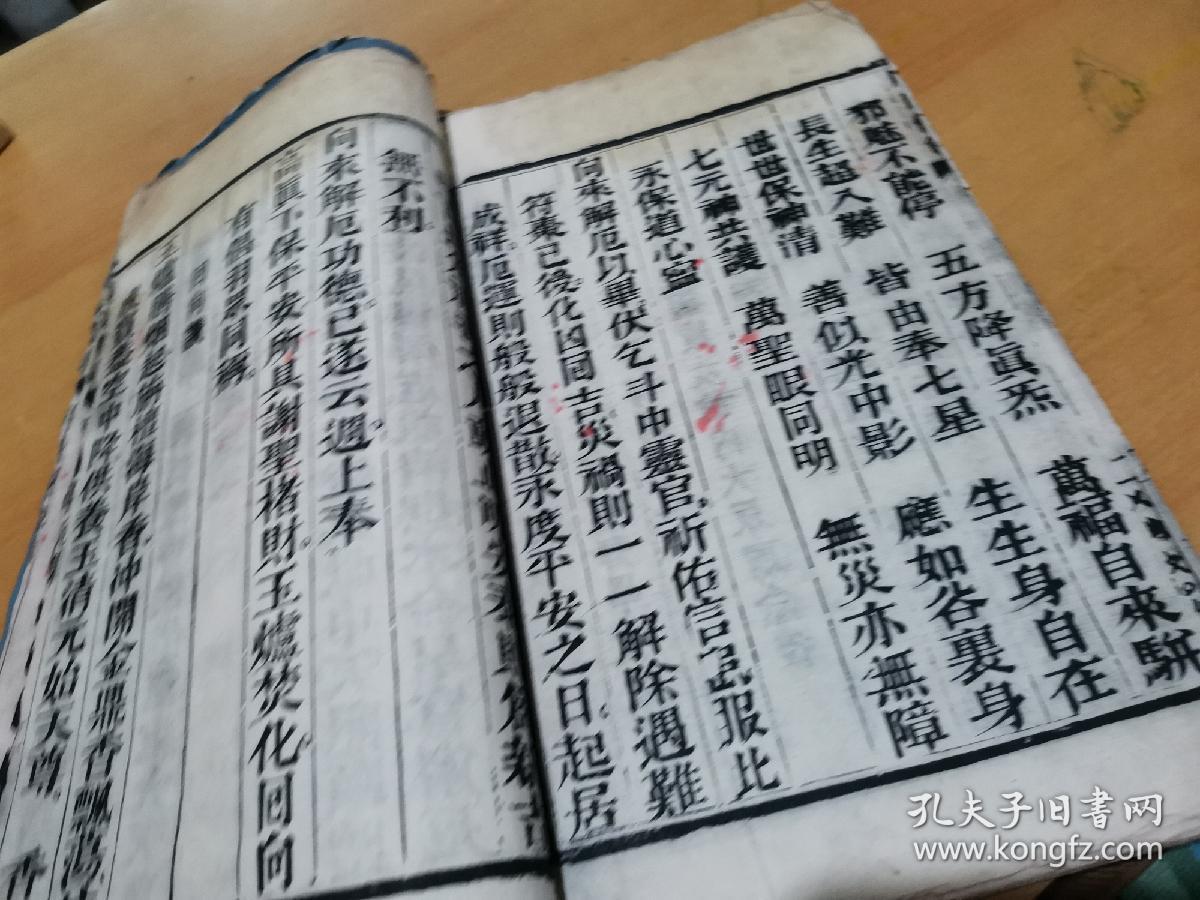 邪魅不能停 五方降眞炁 萬福自來駢
長生超八難 皆由奉七星 生生身自在
世世保神清 善似光中影 應如谷裏身
七元神共護 萬聖眼同明 無災亦無障
永保道心寍
向來解厄以畢伏乞斗中靈官祈佑言 服比
符藥已後化凶同吉災禍則一一解除遇難
成祥厄運則般般退散永度平安之日起居
無不利
向來解厄功德已遂云週上奉
高眞下保平安所具謝聖楮財玉爐焚化回向
有
降供養玉清元始天尊
香沖開金鼎香飄
香
孔夫子旧书网
www.kongfz.com